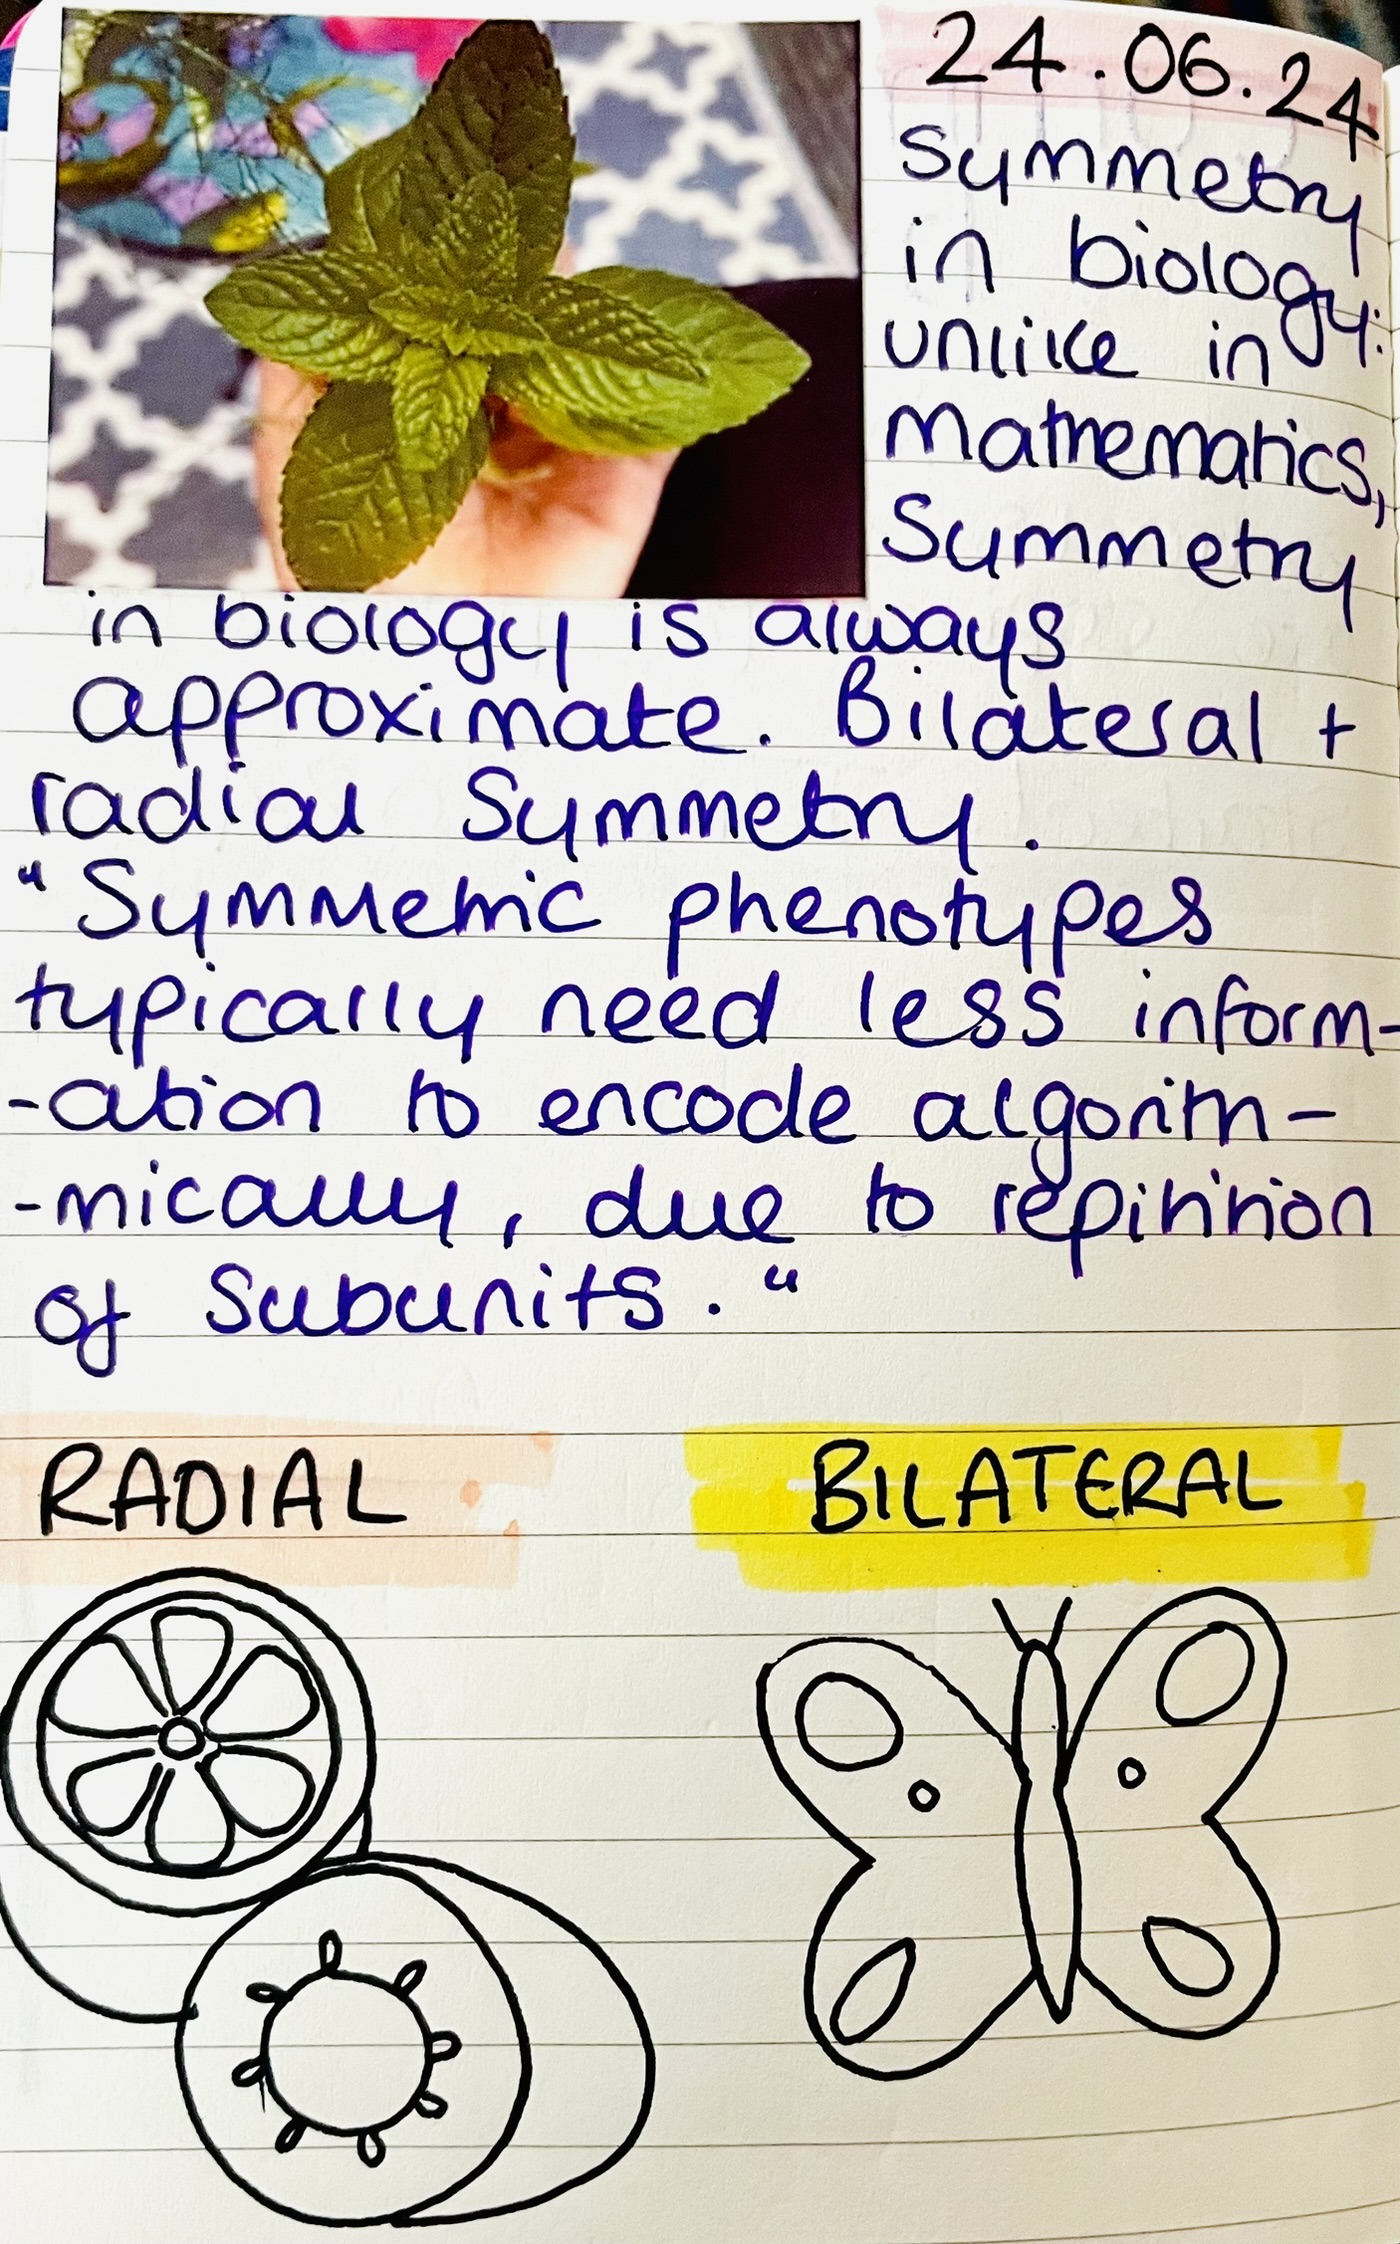 24.06.24
Symmetry
in biology:
unlike in
Mathematics,
Symmetry
in biology is always
approximate. Bilateral +
radial Symmetry.
"Symmetric phenotypes
typically need less inform-
-ation to encode algorith-
-mically, due to repitition
of Subunits."
RADIAL
BILATERAL